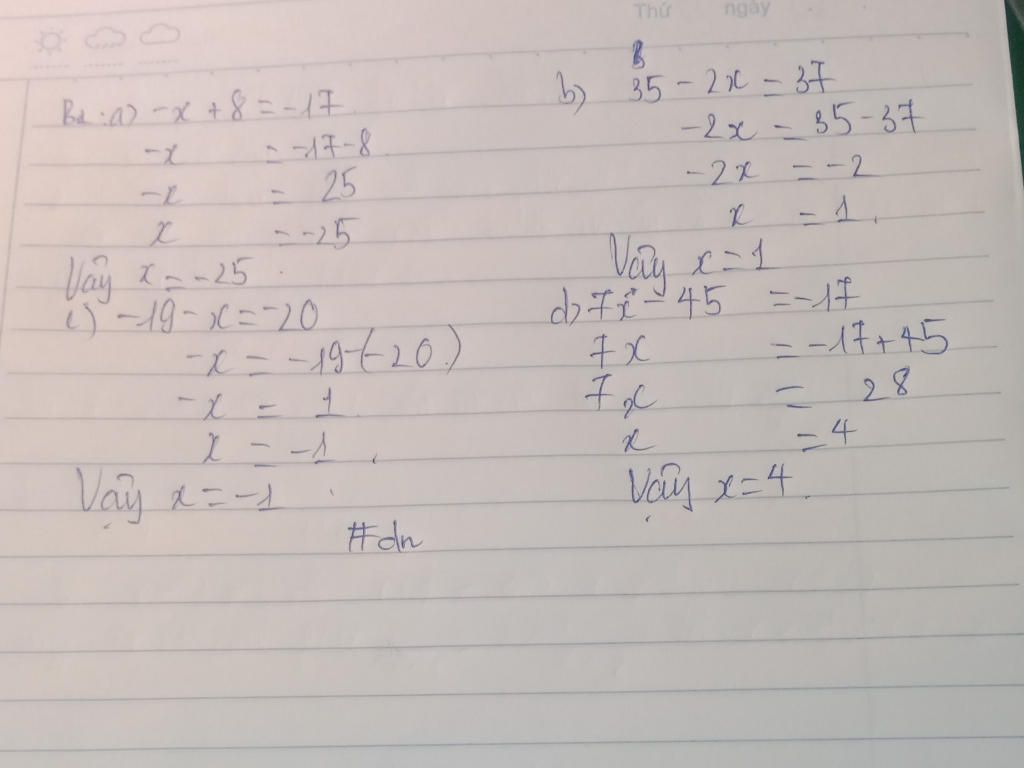 Thứ ngày
B1: a) -x + 8 = -17
-x = -17-8
-x = 25
x = -25
Vậy x = -25
c) -19 - x = -20
-x = -19-(-20)
-x = 1
x = -1
Vậy x = -1
b) 35 - 2x = 37
-2x = 35-37
-2x = -2
x = 1.
Vậy x = 1
d) 7x - 45 = -17
7x = -17+45
7x = 28
x = 4
Vậy x = 4.
#dn